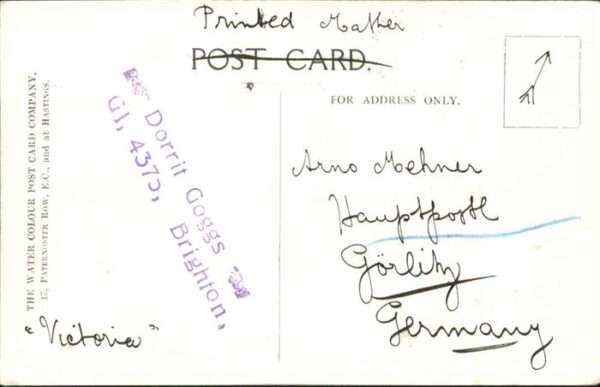 Printed Matter
POST CARD.
FOR ADDRESS ONLY.
THE WATER COLOUR POST CARD COMPANY,
17, PATERNOSTER ROW, E.C., and at HASTINGS.
Dorrit Goggs
Gl, 4373, Brighton,
Arno Mehner
Hauptpostl
Görlitz
Germany
"Victoria"